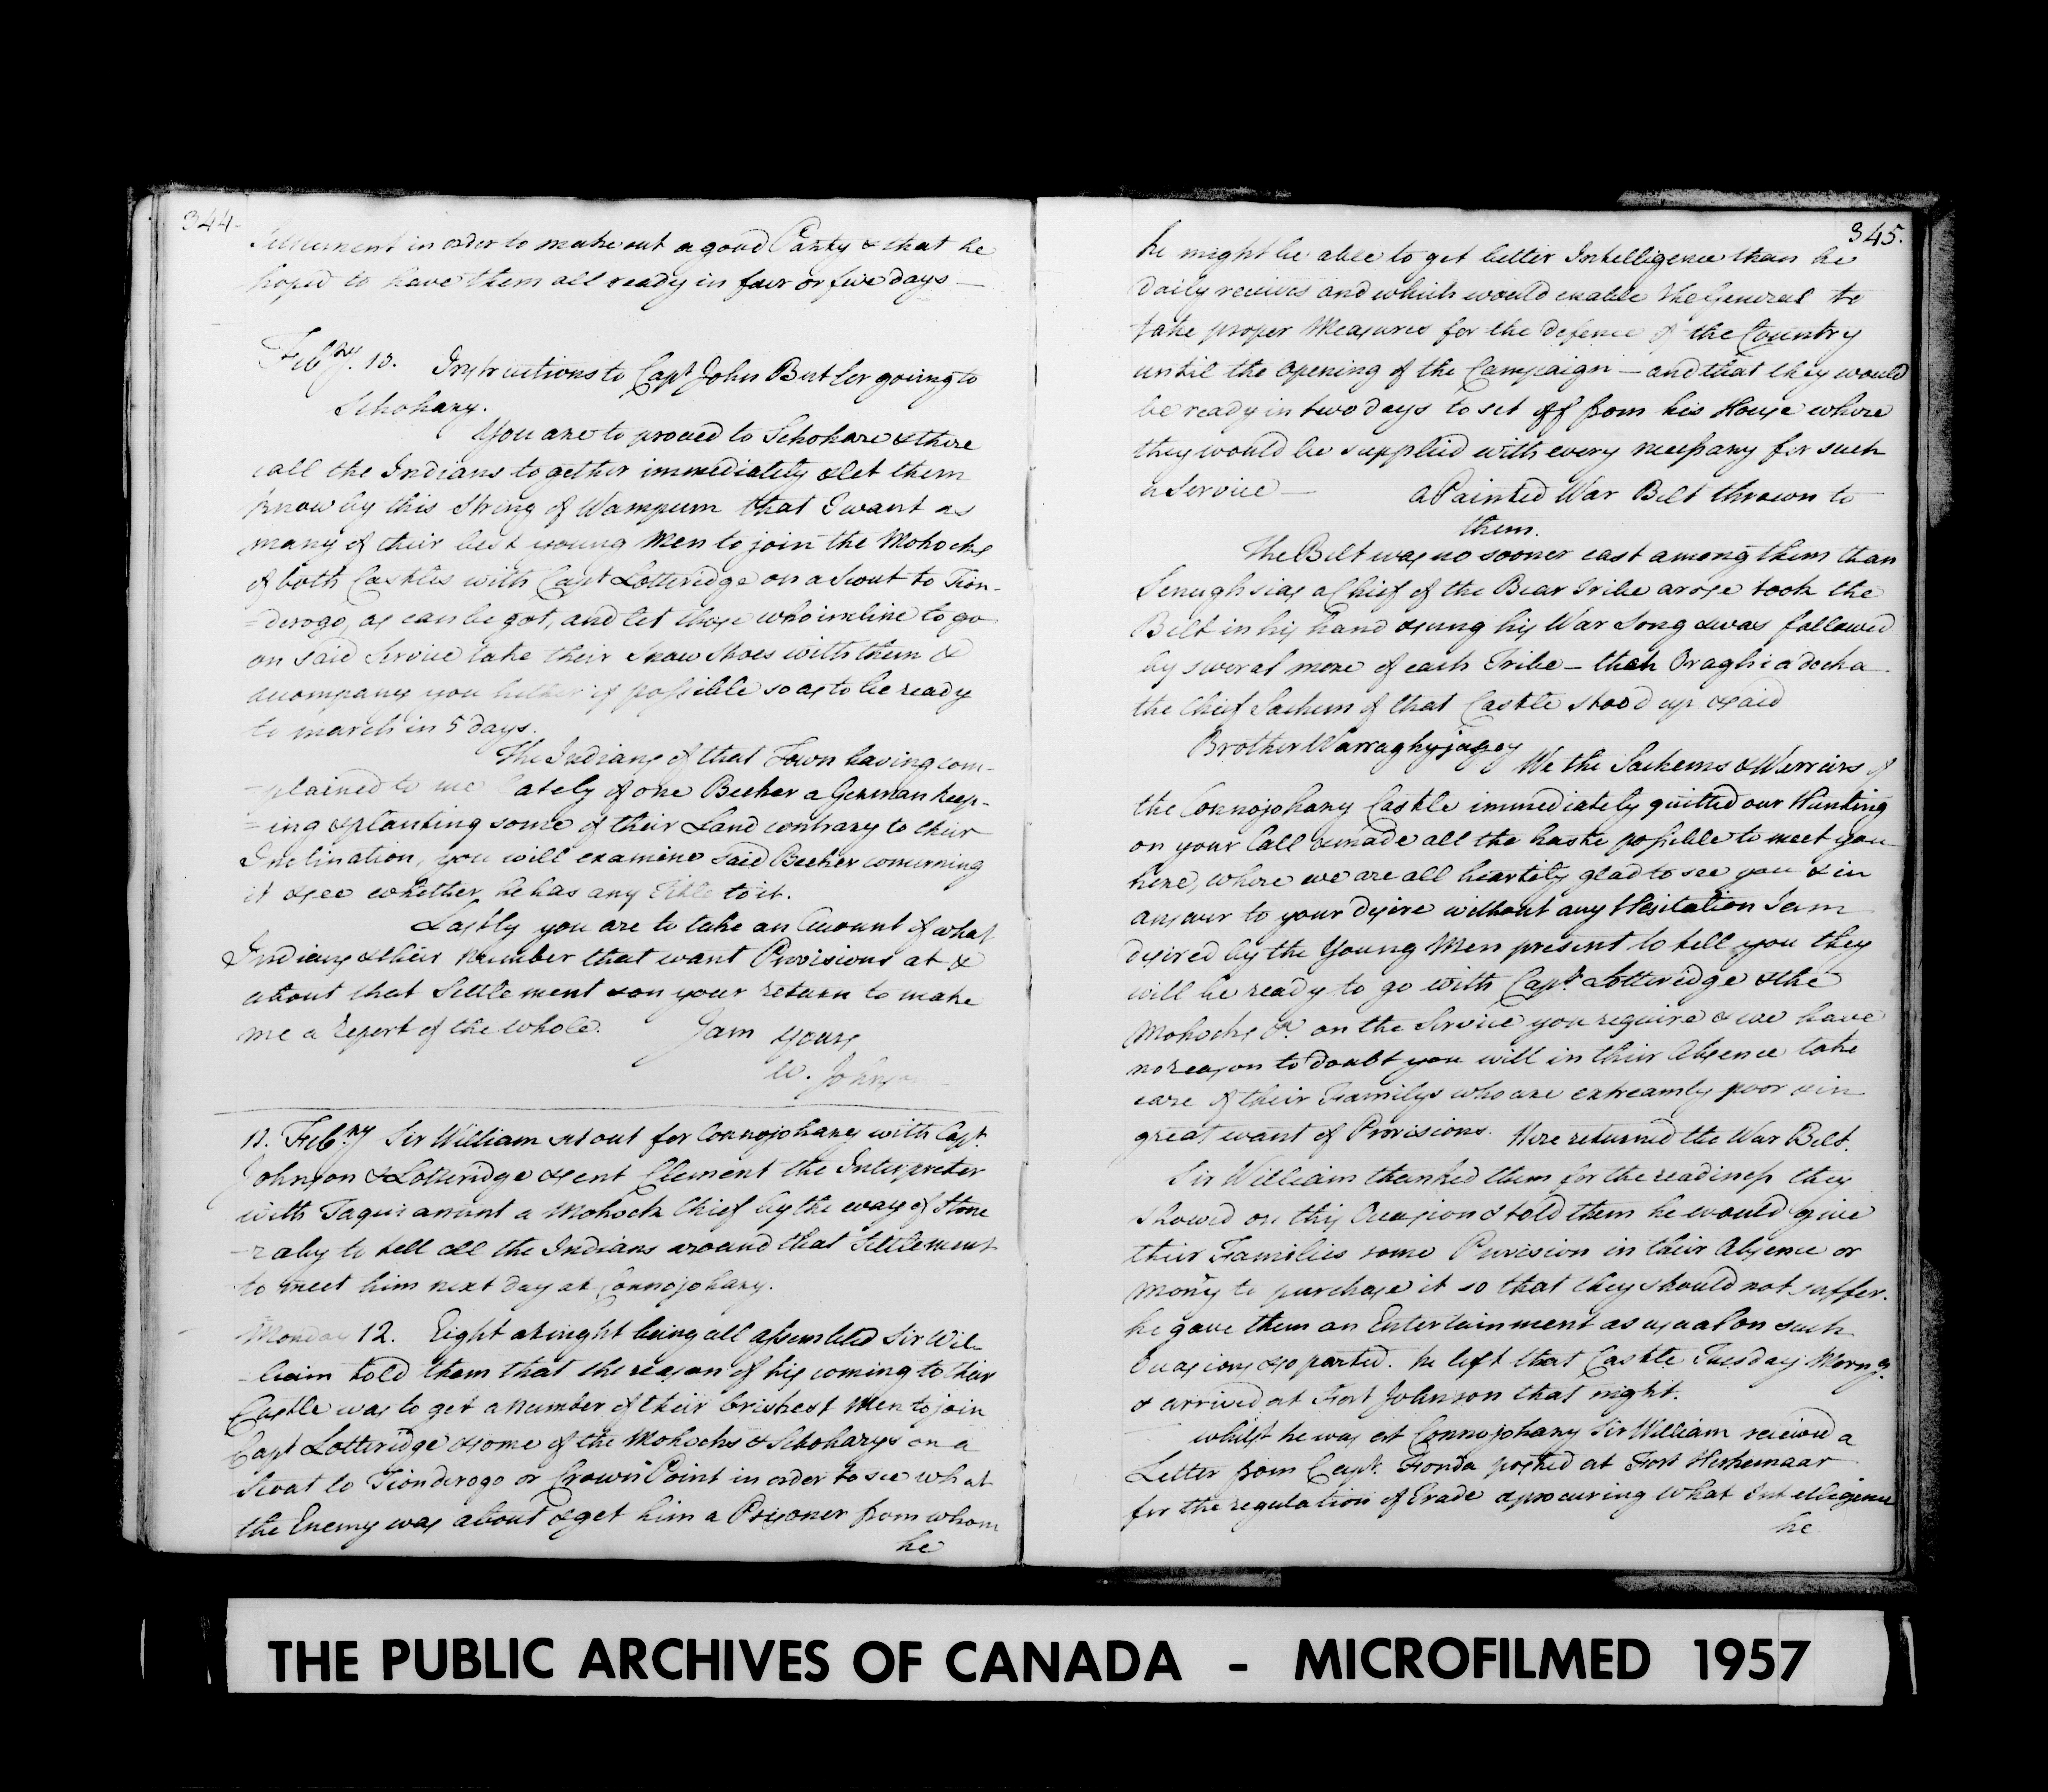 344
Settlement in order to make out a good Party & that he
hoped to have them all ready in four or five days —
Febry. 10. Instructions to Capt John Butler going to
Schohary.
You are to proceed to Schohare & there
call the Indians together immediately & let them
know by this String of Wampum that I want as
many of their best young Men to join the Mohocks
of both Castles with Capt Lotteridge on a Scout to Tion-
=derogo, as can be got, and let those who incline to go
on said Service take their Snow Shoes with them &
accompany you hither if possible so as to be ready
to march in 5 days.
The Indians of that Town having com-
-plained to me lately of one Becker a German keep-
=ing & planting some of their Land contrary to their
Inclination, you will examine said Becker concerning
it & see whether he has any Title to it.
Lastly you are to take an Account of what
Indians & their Number that want Provisions at &
about that Settlement & on your return to make
me a Report of the whole. I am Yours
W. Johnson
11. Febry Sir William set out for Connojohary with Capt.
Johnson & Lotteridge & sent Clement the Interpreter
with Taquaanunt a Mohock Chief by the way of Stone
-raby to tell all the Indians around that Settlement
to meet him next day at Connojohary.
Monday 12. Eight at night being all assembled Sir Wil-
-liam told them that the reason of his coming to their
Castle was to get a number of their briskest Men to join
Capt Lotteridge & some of the Mohocks & Schoharys on a
Scout to Tionderogo or Crown Point in order to see what
the Enemy was about & get him a Prisoner from whom
he
345.
he might be able to get better Intelligence than he
daily receives and which would enable the General to
take proper Measures for the defence of the Country
until the opening of the Campaign — and that they would
be ready in two days to set off from his House where
they would be supplied with every necessary for such
a Service — a Painted War Belt thrown to
them.
The Belt was no sooner cast among them than
Senughsias a Chief of the Bear Tribe arose took the
Belt in his hand & sung his War Song & was followed
by several more of each Tribe — then Oraghiadecha
the Chief Sachem of that Castle stood up & said
Brother Warraghyjagey
We the Sachems & Warriors of
the Connojohary Castle immediately quitted our Hunting
on your Call & made all the haste possible to meet you
here, where we are all heartily glad to see you & in
answer to your desire without any Hesitation I am
desired by the Young Men present to tell you they
will be ready to go with Capt. Lotteridge & the
Mohocks &c. on the Service you require & we have
no reason to doubt you will in their Absence take
care of their Familys who are extreamly poor & in
great want of Provisions. Here returned the War Belt.
Sir William thanked them for the readiness they
showed on this Occasion & told them he would give
their Families some Provision in their Absence or
Mony to purchase it so that they should not suffer.
he gave them an Entertainment as usual on such
Occasions & so parted. he left that Castle Tuesday Morng.
& arrived at Fort Johnson that night.
whilst he was at Connojohary Sir William received a
Letter from Capt. Fonda posted at Fort Herkemaar
for the regulation of Trade & procuring what Intelligence
he
THE PUBLIC ARCHIVES OF CANADA - MICROFILMED 1957